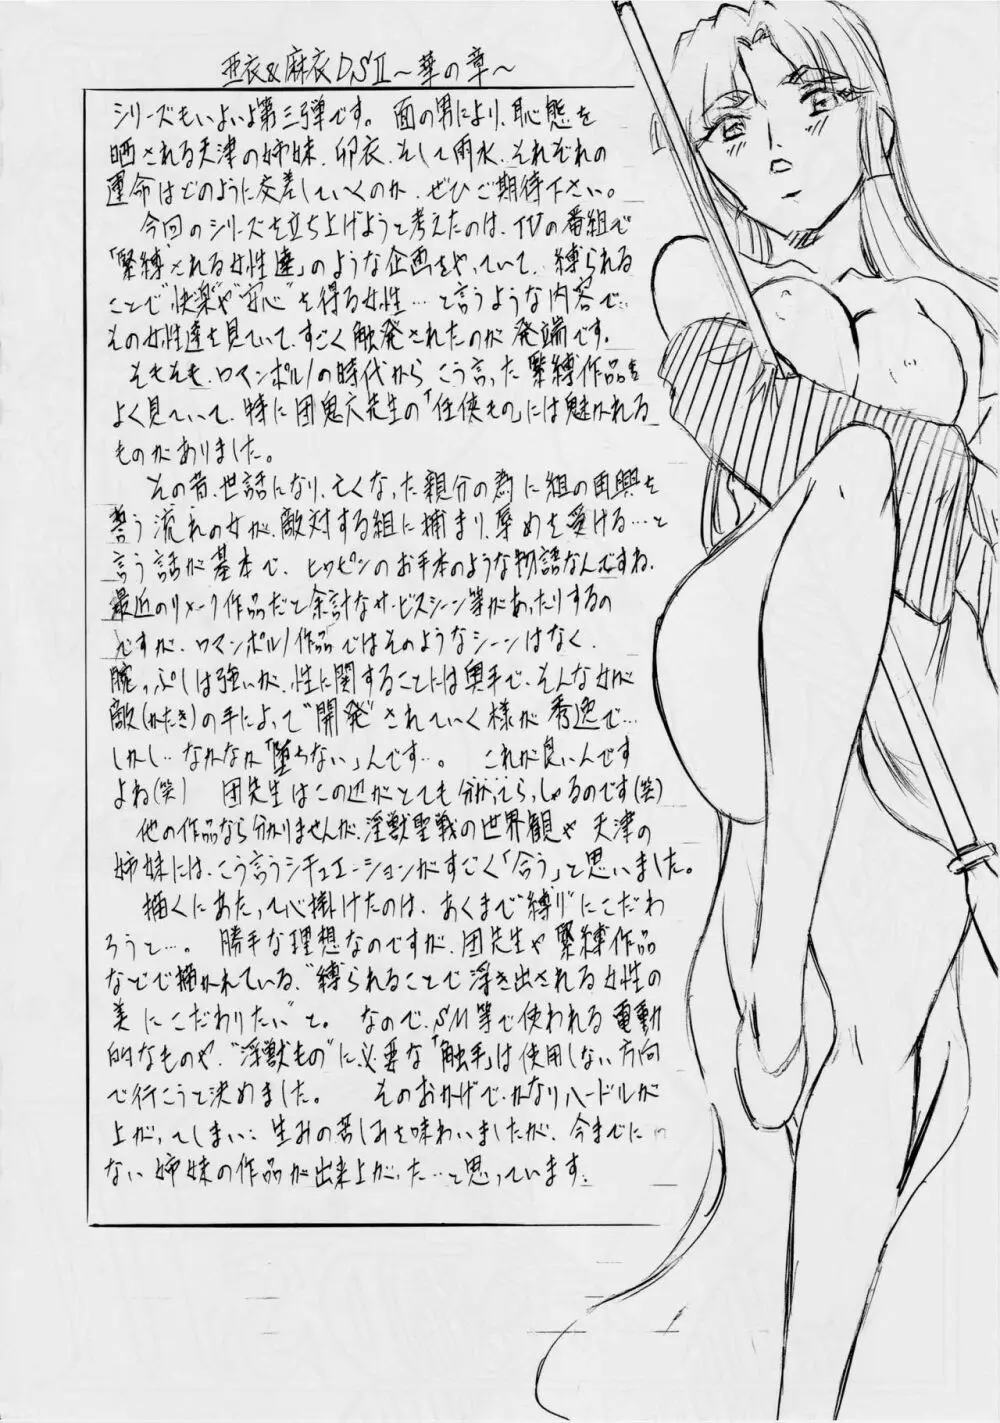 亜衣&麻衣D.SⅡ～華の章～
シリーズもいよいよ第三弾です。 面の男により、恥態を
晒される天津の姉妹、卯衣、そして雨水、それぞれの
運命はどのように交差していくのか、ぜひご期待下さい。
今回のシリーズを立ち上げようと考えたのは、TVの番組で
「緊縛される女性達」のような企画をやっていて、縛られる
ことで“快楽”や“安心”を得る女性…と言うような内容で、
その女性達を見ていて、すごく触発されたのが発端です。
そもそも、ロマンポルノの時代からこう言った緊縛作品を
よく見ていて、特に団鬼六先生の「任侠もの」には魅かれる
ものがありました。
その昔、世話になり、亡くなった親分の為に組の再興を
誓う流れの女が、敵対する組に捕まり、辱めを受ける…と
言う話が基本で、ヒロピンのお手本のような物語なんですね。
最近のリメーク作品だと余計なサービスシーン等があったりするの
ですが、ロマンポルノ作品ではそのようなシーンはなく、
腕っぷしは強いが、性に関することには奥手で、そんな女が
敵(かたき)の手によって“開発”されていく様が秀逸で…
しかし…なかなか「堕ちない」んです…。 これが良いんです
よね(笑) 団先生はこの辺がとても分かってらっしゃるのです(笑)
他の作品なら分かりませんが、淫獣聖戦の世界観や天津の
姉妹には、こう言うシチュエーションがすごく「合う」と思いました。
描くにあたって心掛けたのは、あくまで“縛り”にこだわ
ろうと…。 勝手な理想なのですが、団先生や緊縛作品
などで描かれている、“縛られることで浮き出される女性の
美にこだわりたい”と。 なので、SM等で使われる電動
的なものや、“淫獣もの”に必要な「触手」は使用しない方向
で行こうと決めました。 そのおかげで、かなりハードルが
上がってしまい… 生みの苦しみを味わいましたが、今までに
ない姉妹の作品が出来上がった…と思っています。